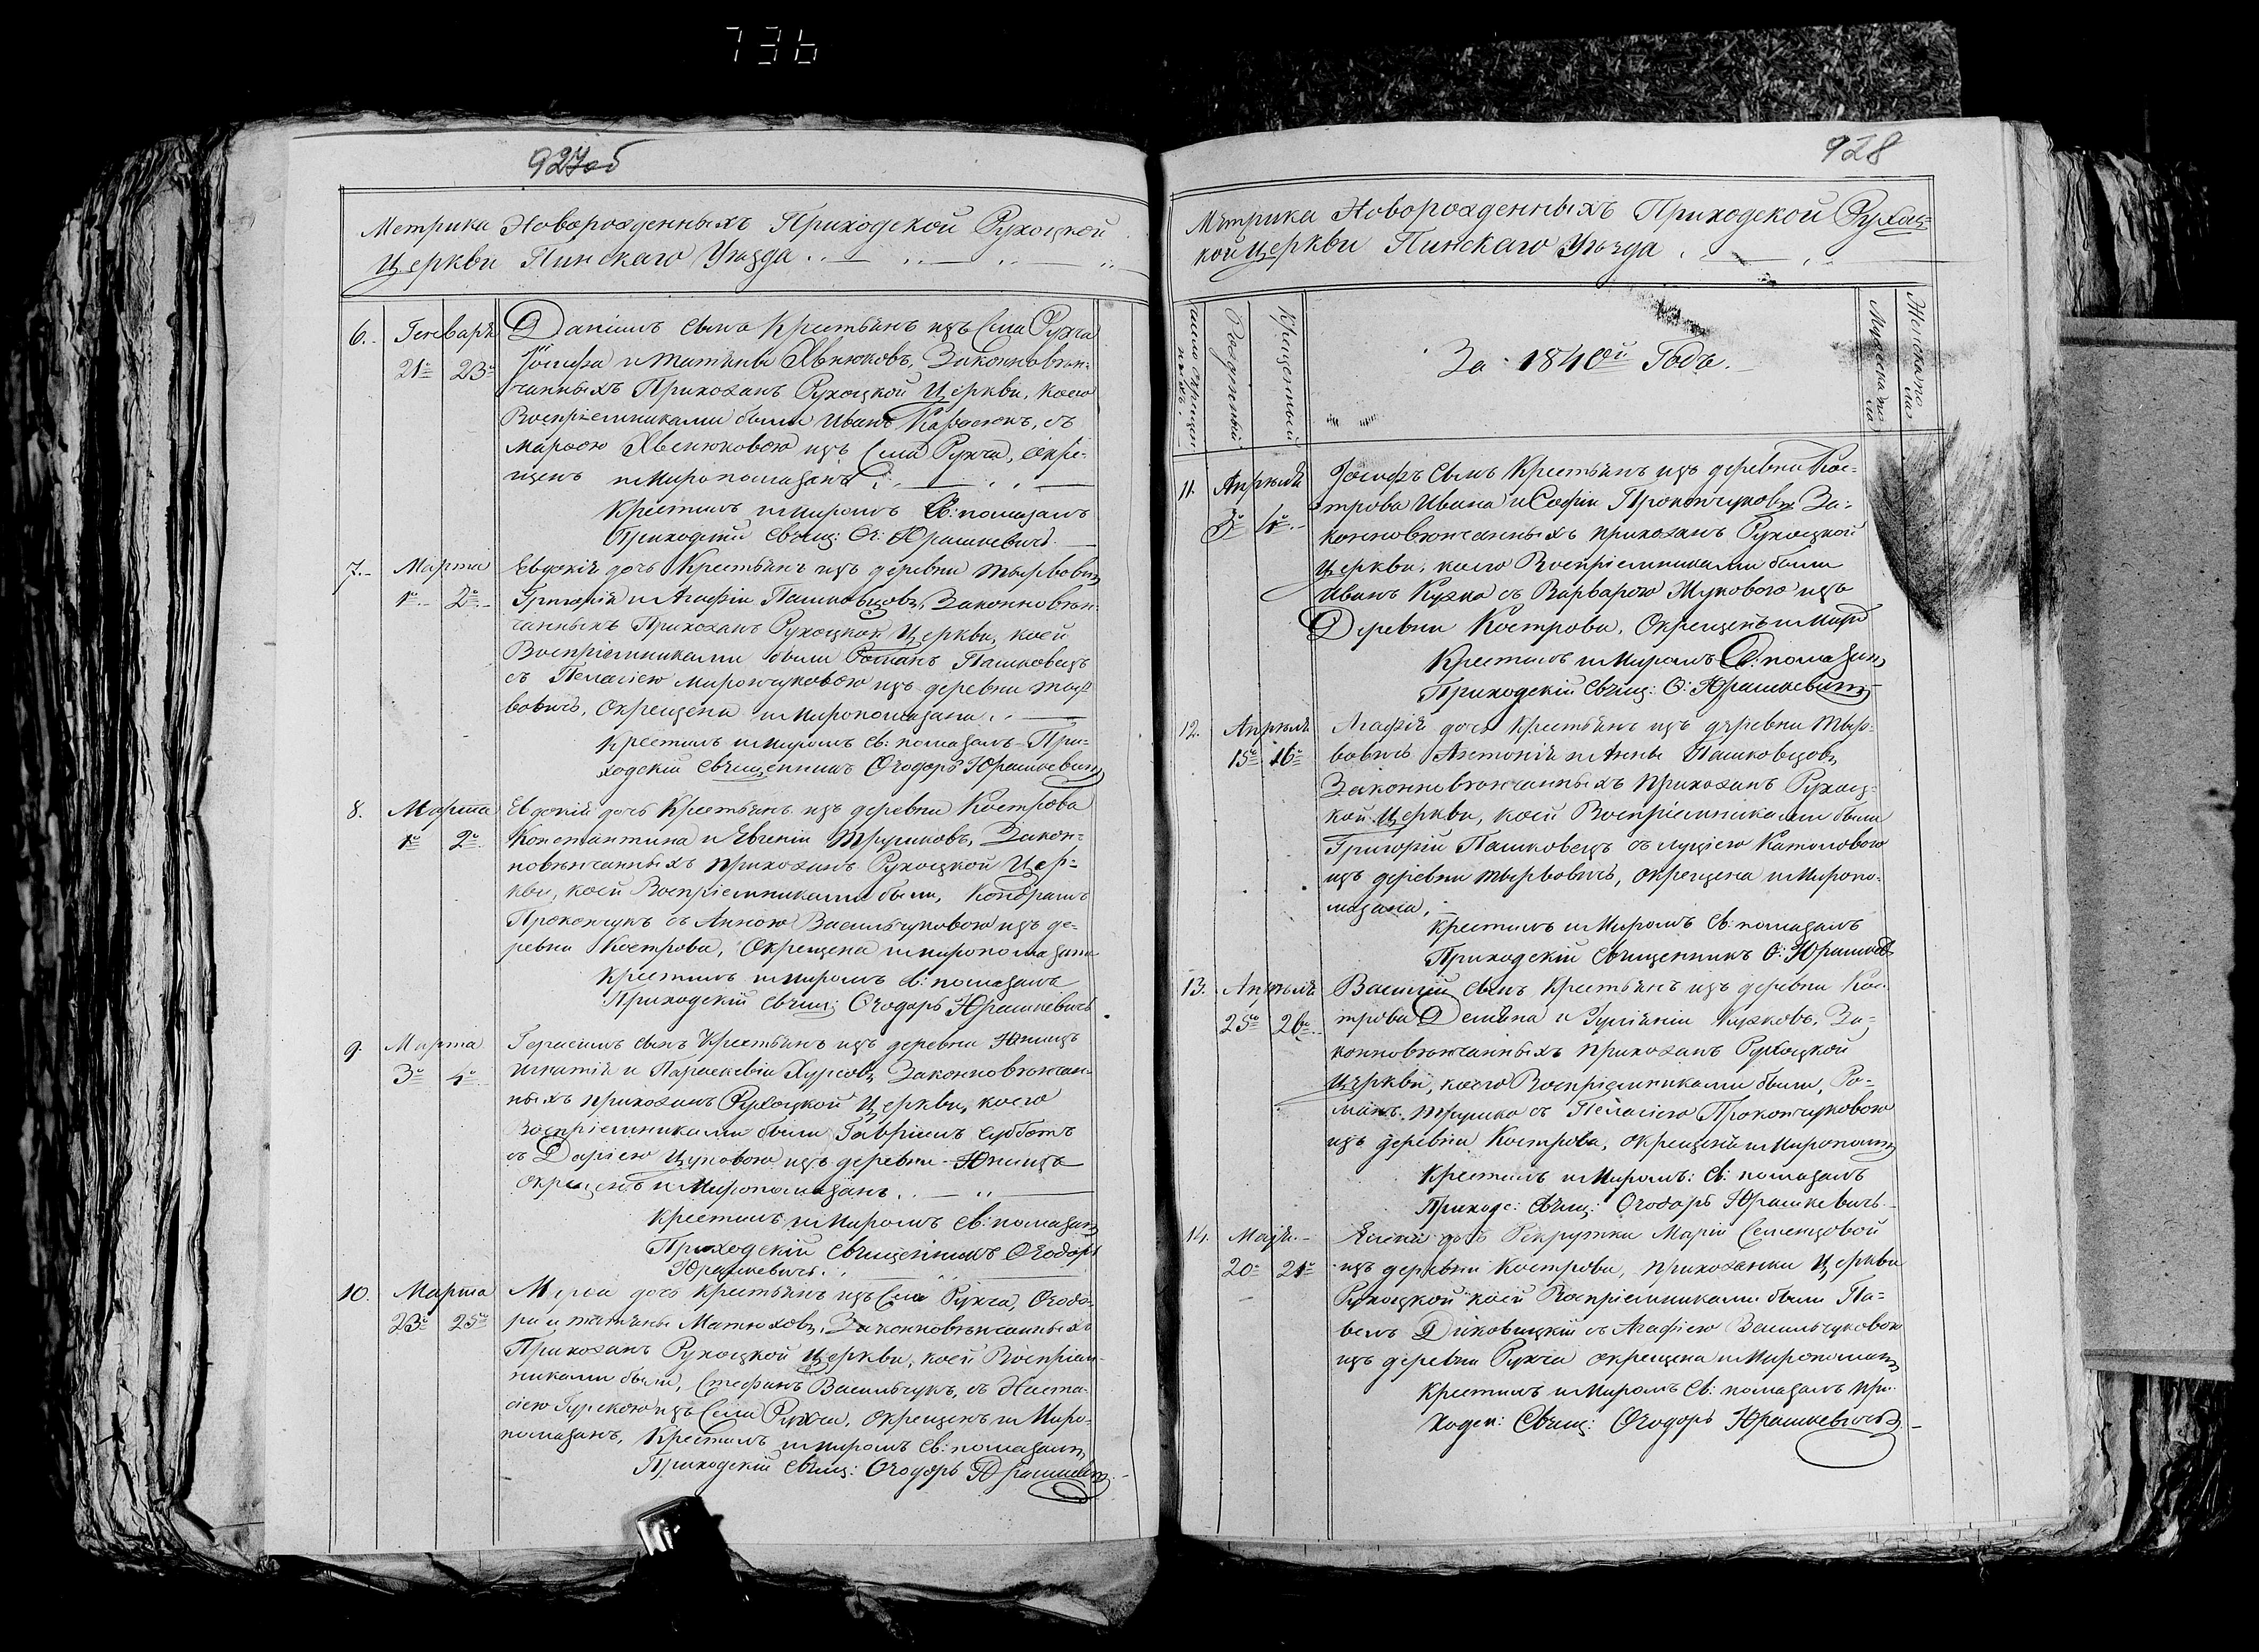 736
927об
Метрика Новорожденныхъ Приходской Рухоцкой
Церкви Пинскаго Уѣзда
6. Генваря 21 23
Даніилъ сынъ Крестьянъ изъ Села Рухча
Іосифа и Татіаны Хвенюковъ, Законновѣн-
чанныхъ Прихожанъ Рухоцкой Церкви, коего
Воспріемниками были Иванъ Карасюкъ, съ
Марѳою Хвенюковою изъ Села Рухча, окре-
щенъ и Миропомазанъ
Крестилъ и Миромъ Св: помазалъ
Приходскій Свящ: Ѳ: Юрашкевичъ.
7. Марта 1 2
Евдокія дочь Крестьянъ изъ деревни Тырвовичъ
Григорія и Агафіи Пашковцовъ, Законновѣн-
чанныхъ Прихожанъ Рухоцкой Церкви, коей
Воспріемниками были Романъ Пашковецъ
съ Пелагіею Мирончуковою изъ деревни Тыр-
вовичъ, Окрещена и Миропомазана.
Крестилъ и Миромъ Св: помазалъ При-
ходскій Священникъ Ѳеодоръ Юрашкевичъ
8. Марта 1 2
Евдокія дочь Крестьянъ изъ деревни Кострова
Константина и Евгеніи Трушковъ, Закон-
новѣнчанныхъ прихожанъ Рухоцкой Цер-
кви, коей Воспріемниками были, Кондратъ
Прокопчукъ съ Анною Васильчуковою изъ де-
ревни Кострова, Окрещена и миропомазана
Крестилъ и миромъ Св: помазалъ
Приходскій Свящ: Ѳеодоръ Юрашкевичъ
9. Марта 3 4
Герасимъ сынъ Крестьянъ изъ деревни
Игнатія и Параскевіи Хурсовъ, Законновѣнчан-
ныхъ прихожанъ Рухоцкой Церкви, коего
Воспріемниками были Гавріилъ Субботъ
съ Даріею Цуковою изъ деревни
окрещенъ и Миропомазанъ.
Крестилъ и Миромъ Св: помазалъ
Приходскій Священникъ Ѳеодоръ
Юрашкевичъ.
10. Марта 23 25
дочь Крестьянъ изъ Села Рухча, Ѳеодо-
ра и Татіаны Матюховъ, Законновѣнчанныхъ
Прихожанъ Рухоцкой Церкви, коей Воспріем-
никами были, Стефанъ Васильчукъ, съ Наста-
сіею Гурскою изъ Села Рухча, окрещенъ и Миро-
помазанъ, Крестилъ и миромъ Св: помазалъ
Приходскій Свящ: Ѳеодоръ Юрашкевичъ
928
Метрика Новорожденныхъ Приходской Рухоц-
кой Церкви Пинскаго Уѣзда
Число окрещен
Рожденный
Крещенный
За 1840ой Годъ.
Мужеска по ла
Женскаго по ла
11. Апрѣля 3 4
Іосифъ сынъ Крестьянъ изъ деревни Кос-
трова Ивана и Софіи Прокопчуковъ За-
конновѣнчанныхъ прихожанъ Рухоцкой
Церкви, коего Воспріемниками были
Иванъ Кужко съ Варварою Жуковою изъ
Деревни Кострова, Окрещенъ и Миро
Крестилъ и Миромъ Св: помазалъ
Приходскій Свящ: Ѳ: Юрашкевичъ
12. Апрѣля 15 16
Агафія дочь Крестьянъ изъ деревни Тыр-
вовичъ Антонія и Анны Пашковцовъ
Законновѣнчанныхъ прихожанъ Рухоц-
кой Церкви, коей Воспріемниками были
Григорій Пашковецъ съ Католовою
изъ деревни Тырвовичъ, окрещена и Миропо-
мазана,
крестилъ и Миромъ Св: помазалъ
Приходскій Священникъ Ѳ: Юрашкев
13. Апрѣля 25 26
Василій сынъ Крестьянъ изъ деревни Кос-
трова Деміана и Іуліаніи Кужковъ, За-
конновѣнчанныхъ прихожанъ Рухоцкой
Церкви, коего Воспріемниками были, Ро-
манъ Трушко съ Пелагіею Прокопчуковою
изъ деревни Кострова, окрещенъ и Миропомаз
Крестилъ и Миромъ: Св: помазалъ
Приходс: Свящ: Ѳеодоръ Юрашкевичъ
14. Маія 20 21
дочь Рекрутки Маріи Семенцовой
изъ деревни Кострова, прихожанки Церкви
Рухоцкой коей Воспріемниками были Па-
велъ Диковицкій съ Агафіею Васильчуковою
изъ деревни Рухча окрещена и Миропомаз
Крестилъ и Миромъ Св: помазалъ При-
ходск: Свящ: Ѳеодоръ Юрашкевичъ